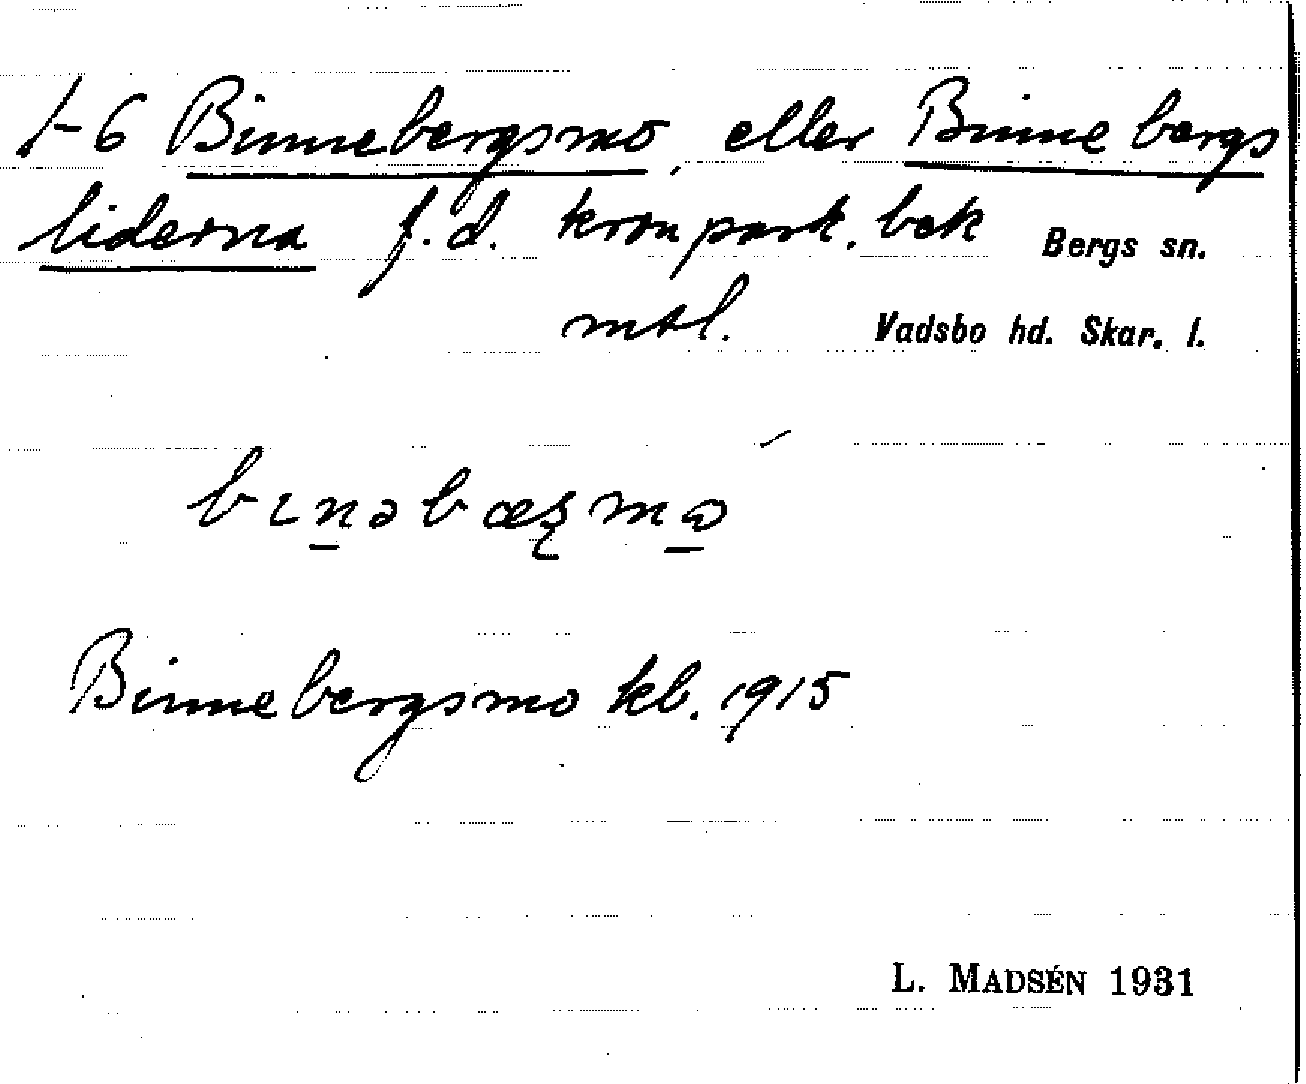 1-6 Binnebergsmo, eller Binnebergs
liderna f.d. kronpark. bek
Bergs sn.
mtl.
Vadsbo hd. Skar. l.
bɩnəbæʂmɷ
Binnebergsmo kb. 1915
L. MADSÉN 1931